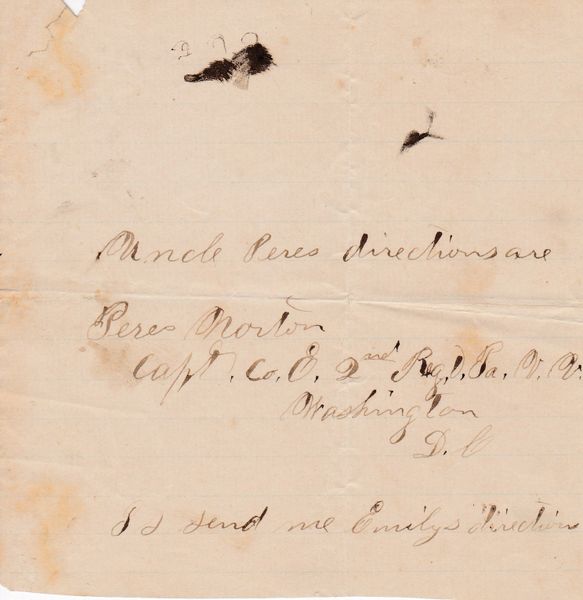 Uncle Peres directions are
Peres Norton
Capt. Co. E. 2nd Regt. Pa. V. V.
Washington
D. C
send me Emilys direction